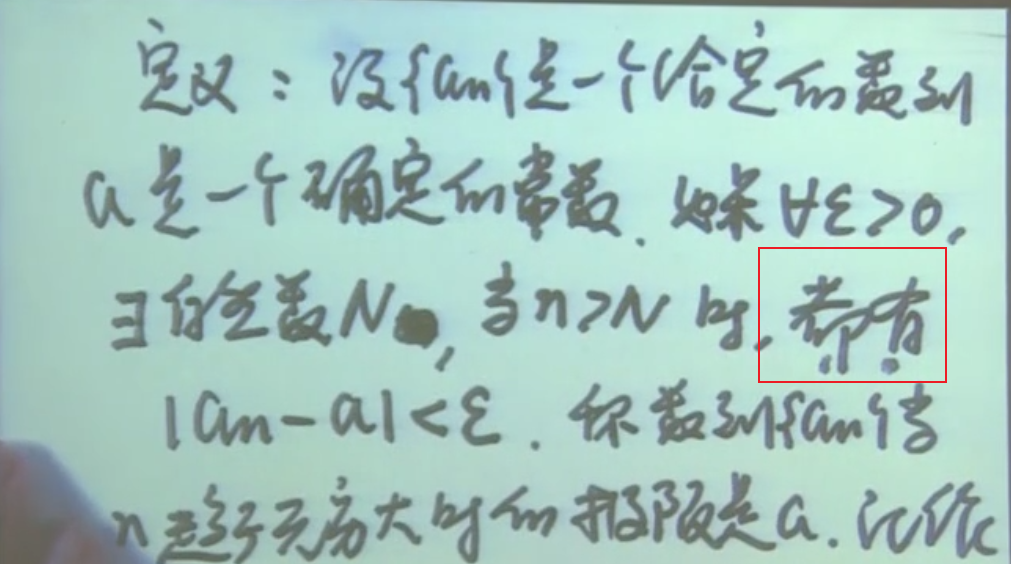 定义：设{an}是一个给定的数列
a是一个确定的常数.如果∀ε>0,
∃自然数N,当n>N时,都有
|an-a|<ε.称数列{an}当
n趋于无穷大时的极限是a.记作